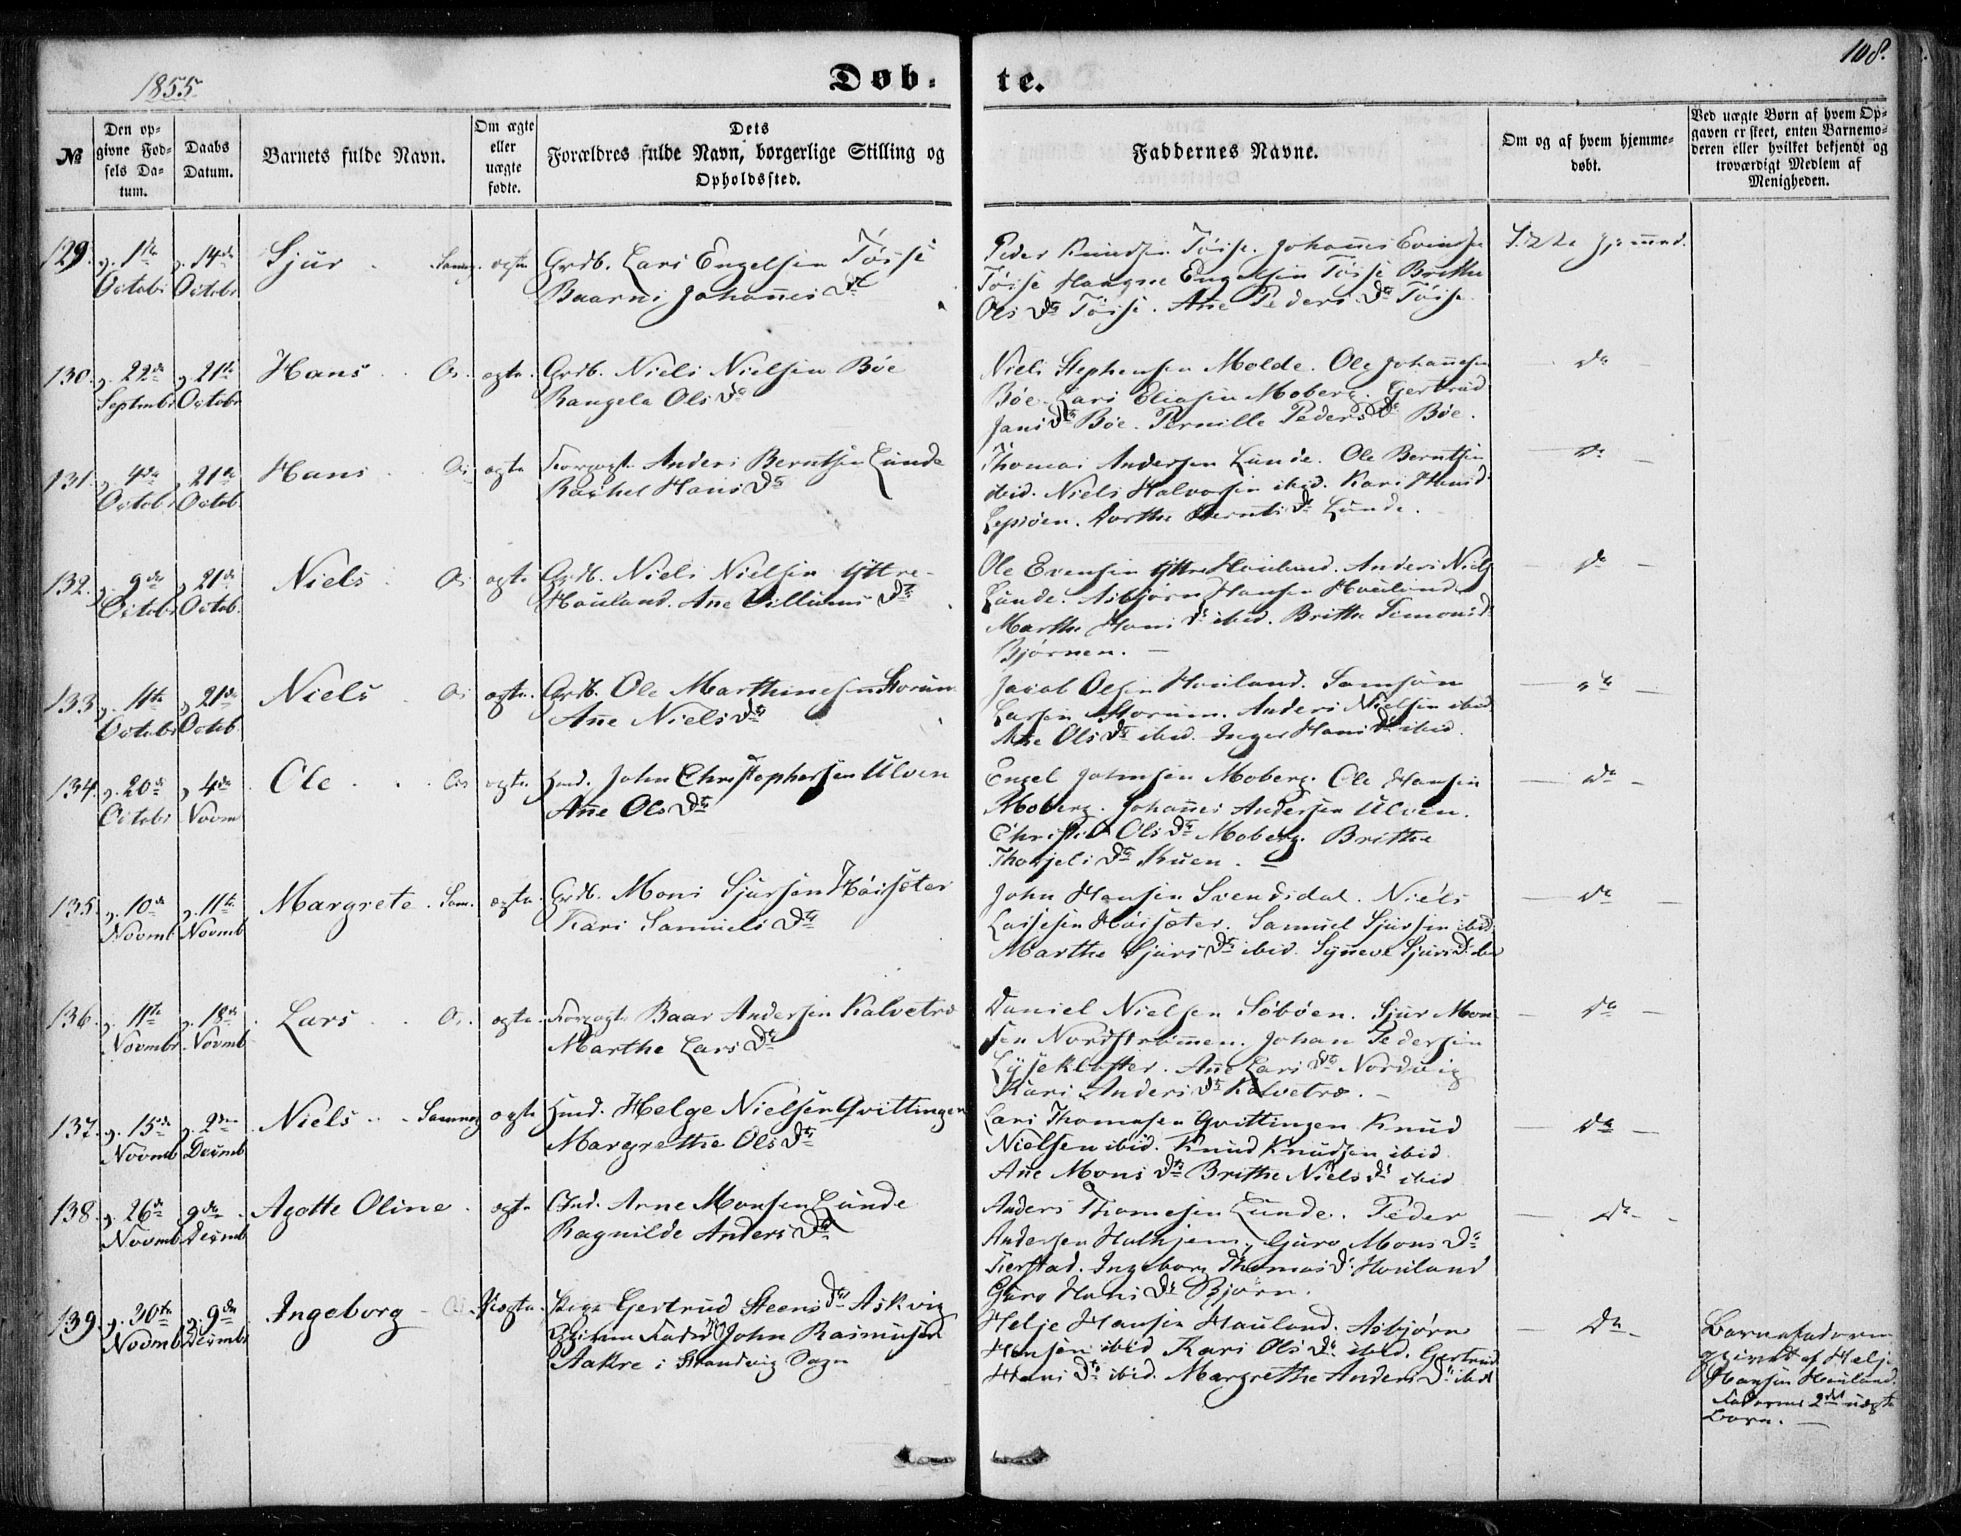 1855
Døb-
te.
108.
№
Den op-
givne Fød-
sels Da-
tum.
Daabs
Datum.
Barnets fulde Navn.
Om ægte
eller
uægte
fødte.
Dets
Forældres fulde Navn, borgerlige Stilling og
Opholdssted.
Faddernes Navne.
Om og af hvem hjemme-
døbt.
Ved uægte Børn af hvem Op-
gaven er skeet, enten Barnemo-
deren eller hvilket bekjendt og
troværdigt Medlem af
Menigheden.
129. 1ste 14de Sjur ægte Grdb. Lars Engelsen Tøsse
Octobr Octobr Baarni Johannes Dtr
Peder Knudsen Tøsse. Johannes Evindsen
Tøsse Haagne Engelsen Tøsse Brithe
Ols Dtr Tøsse. Ane Peders Dtr Tøsse.
130. 22de 21de Hans Os. ægte. Grdb. Niels Nielsen Bøe
Septmbr Octobr Rangela Ols Dtr
Niels Stephensen Molde. Ole Johannesen
Bøe. Lars Eliasen Moberg. Gertrud
Jans Dtr Bøe. Pernille Peders Dtr Bøe.
Do
131. 4de 21de Hans Os ægte Anders Berntsen Lunde
Octobr Octob. Rachel Hans Dtr
Thomas Andersen Lunde. Ole Berntsen
ibid. Niels Halvorsen ibid. Kari Hans D.
Lepsøen. Dorthe Bernts D. Lunde.
Do
132. 9de 21de Niels Os ægte Grdb. Niels Nielsen Yttre-
Octobr Octob. Houland. Ane Villums Dtr
Ole Evensen Yttre Houland. Anders Niels
Lunde. Asbjørn Hansen Houland
Marthe Hans D. ibid. Brithe Simons D.
Bjørnen.
Do
133. 11te 21de Niels Os ægte. Grdb. Ole Marthinesen Storum
Octobr Octob. Ane Niels Dtr
Jacob Olsen Houland. Samson
Larsen Storum. Anders Nielsen ibid
Ane Ols Dtr ibid. Inger Hans D. ibid.
Do
134. 20de 4de Ole Os ægte. Hmd. John Christophersen Ulven
Octobr Novm Ane Ols Dtr
Engel Johnsen Moberg. Ole Hansen
Moberg. Johannes Andersen Ulven.
Christi Ols Dtr Moberg. Brithe
Thorjels Dtr Kuen.
Do
135. 10de 11te Margrete. Sam. ægte Grdb. Mons Sjursen Høisæter
Novmb Novmb Kari Samuels Dtr
John Hansen Svendsdal. Niels
Lassesen Høisæter. Samuel Sjursen ibid.
Marthe Sjurs Dtr ibid. Synneve Sjurs D. ibid
Do
136. 11te 18de Lars Os. ægte. Baar Andersen Kalvetræ
Novmbr Novmb Marthe Lars Dtr
Daniel Nielsen Søbøen. Sjur Mon-
sen Nordstrømmen. Johan Pedersen
Lysekloster. Ane Lars Dtr Nordvig
Kari Anders Dtr Kalvetræ.
Do
137. 15de 2den Niels Samnag ægte Hmd. Helge Nielsen Qvittingen
Novmb Decmb Margrethe Ols Dtr
Lars Thomasen Qvittingen Knud
Nielsen ibid. Knud Knudsen ibid.
Ane Mons Dtr Brithe Niels D. ibid
Do
138. 26de 9de Agotte Oline. ægte Arne Monsen Lunde
Novmb Decmb Ragnilde Anders Dtr
Anders Thomesen Lunde. Peder
Andersen Halhjem. Guro Mons D.
Ingeborg Thomas D. Houland
Guro Hans D. Bjørn.
Do
139. 30te 9de Ingeborg Os. Uægte. Pige Gertrud Steens Dtr Askvig
Novmb Decmbr John Rasmusen
Aakre i Strandvig Sogn
Helje Hansen Hauland. Asbjørn
Hansen ibid Kari Ols D. ibid. Gertrud
Hans Dtr ibid. Margrethe Anders D. ibid
Do
Barnefaderen
opgivet af Helje
Hansen Houland.
Faderens 2det uægte
Barn.